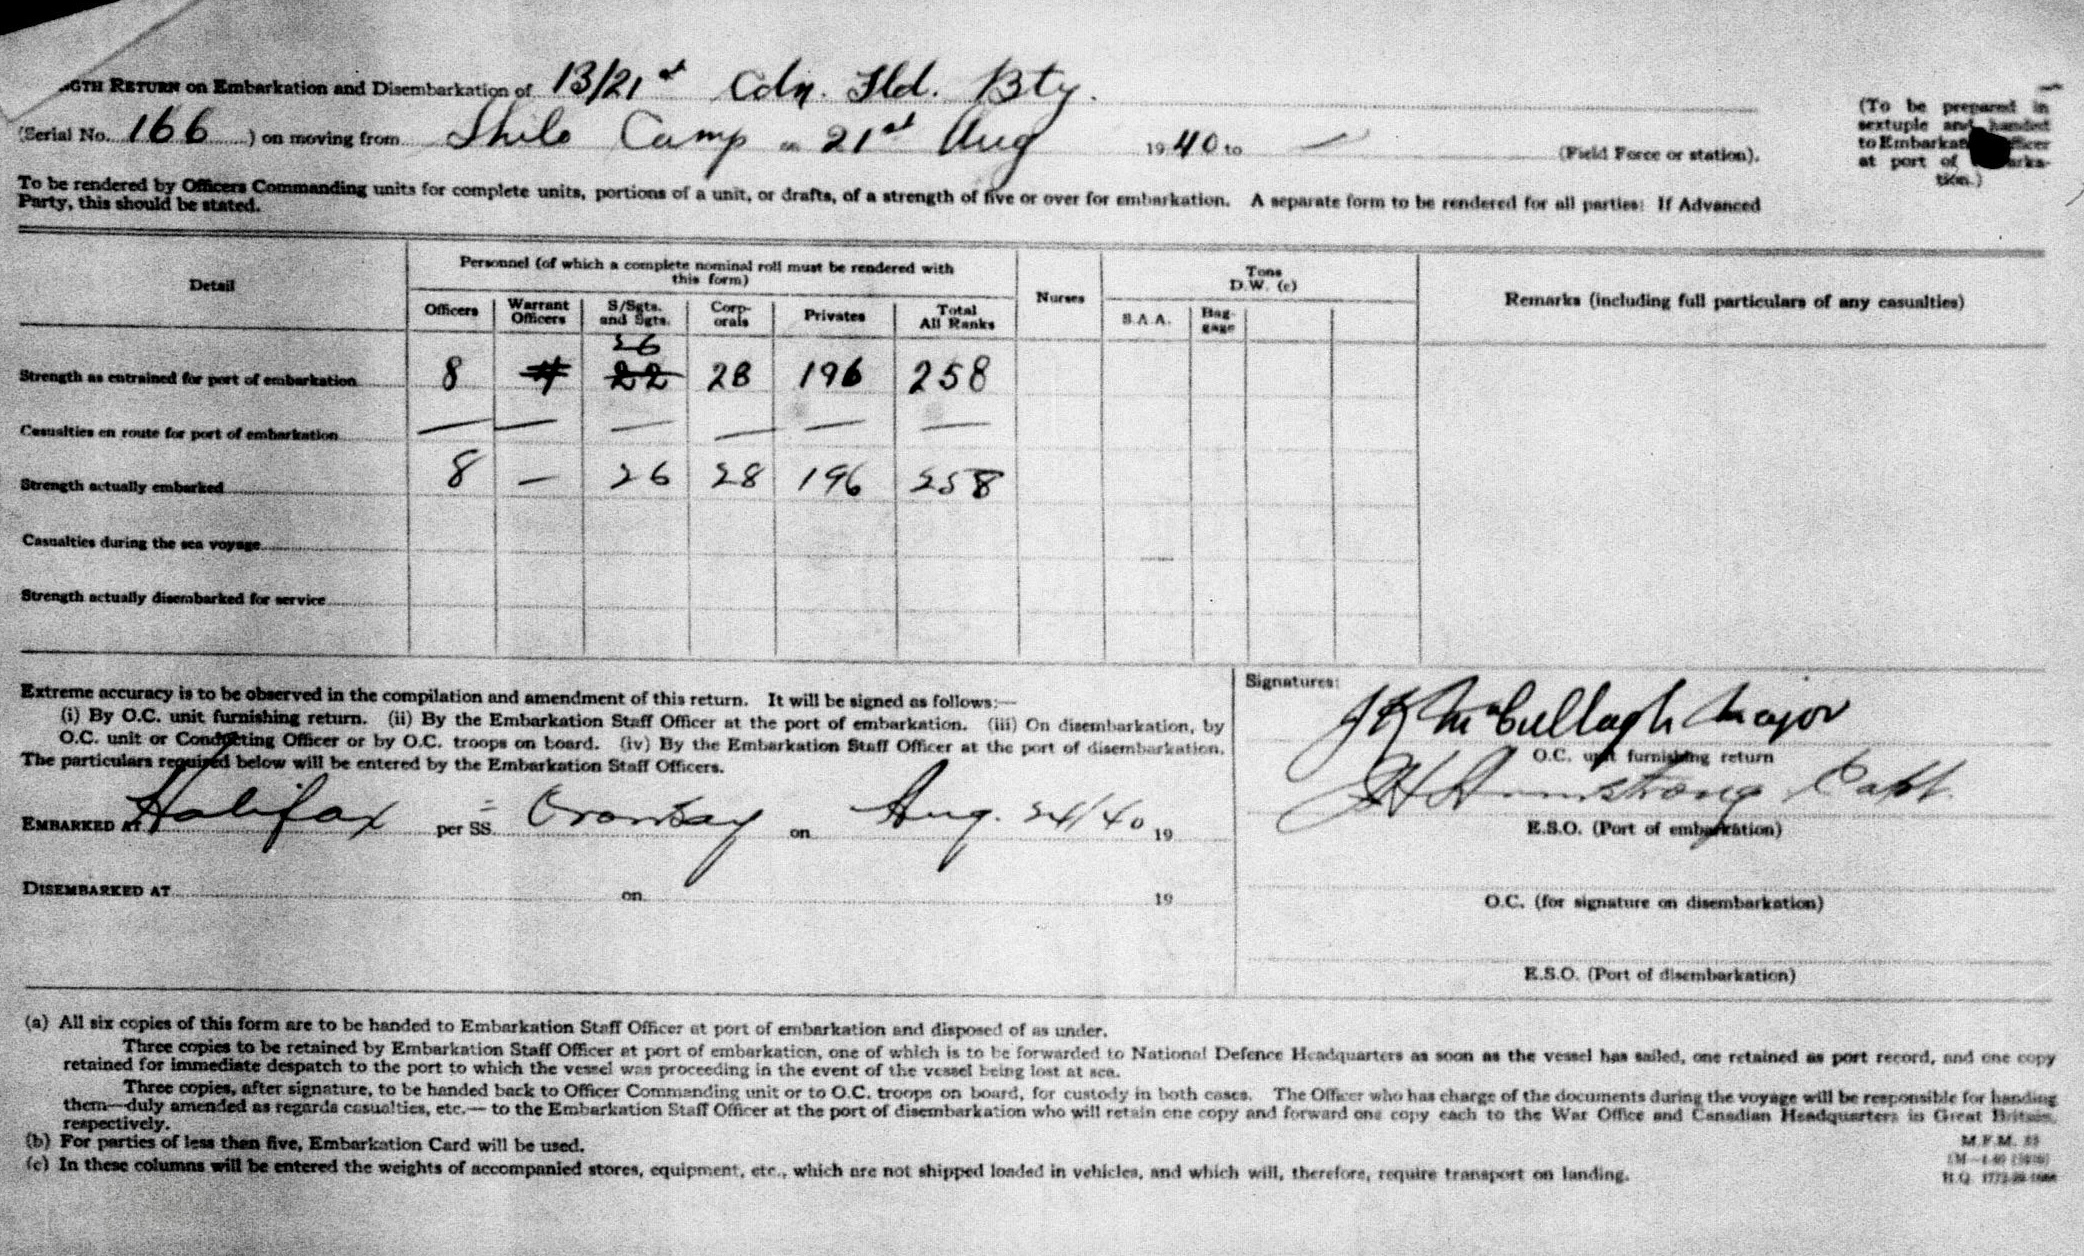 GTH RETURN on Embarkation and Disembarkation of 13/21st Cdn. Fld. Bty.
(Serial No. 166 ) on moving from Shilo Camp on 21st Aug 1940 to — (Field Force or station).
(To be prepared in
sextuple and handed
to Embarkat fficer
at port of arka-
tion.)
To be rendered by Officers Commanding units for complete units, portions of a unit, or drafts, of a strength of five or over for embarkation. A separate form to be rendered for all parties: If Advanced
Party, this should be stated.
Detail
Personnel (of which a complete nominal roll must be rendered with
this form)
Nurses
Tons
D.W. (c)
Remarks (including full particulars of any casualties)
Officers Warrant Officers S/Sgts. and Sgts. Corp-orals Privates Total All Ranks S.A.A. Bag-gage
26
Strength as entrained for port of embarkation 8 4 22 28 196 258
Casualties en route for port of embarkation — — — — — —
Strength actually embarked 8 — 26 28 196 258
Casualties during the sea voyage —
Strength actually disembarked for service
Extreme accuracy is to be observed in the compilation and amendment of this return. It will be signed as follows:—
(i) By O.C. unit furnishing return. (ii) By the Embarkation Staff Officer at the port of embarkation. (iii) On disembarkation, by
O.C. unit or Conducting Officer or by O.C. troops on board. (iv) By the Embarkation Staff Officer at the port of disembarkation.
The particulars required below will be entered by the Embarkation Staff Officers.
EMBARKED AT Halifax per SS. Oronsay on Aug. 24/40 19
DISEMBARKED AT on 19
Signatures:
J K McCullagh Major
O.C. unit furnishing return
H Armstrong Capt.
E.S.O. (Port of embarkation)
O.C. (for signature on disembarkation)
E.S.O. (Port of disembarkation)
(a) All six copies of this form are to be handed to Embarkation Staff Officer at port of embarkation and disposed of as under.
Three copies to be retained by Embarkation Staff Officer at port of embarkation, one of which is to be forwarded to National Defence Headquarters as soon as the vessel has sailed, one retained as port record, and one copy
retained for immediate despatch to the port to which the vessel was proceeding in the event of the vessel being lost at sea.
Three copies, after signature, to be handed back to Officer Commanding unit or to O.C. troops on board, for custody in both cases. The Officer who has charge of the documents during the voyage will be responsible for handing
them—duly amended as regards casualties, etc.— to the Embarkation Staff Officer at the port of disembarkation who will retain one copy and forward one copy each to the War Office and Canadian Headquarters in Great Britain,
respectively.
(b) For parties of less than five, Embarkation Card will be used.
(c) In these columns will be entered the weights of accompanied stores, equipment, etc., which are not shipped loaded in vehicles, and which will, therefore, require transport on landing.
M.F.M. 33
H.Q.